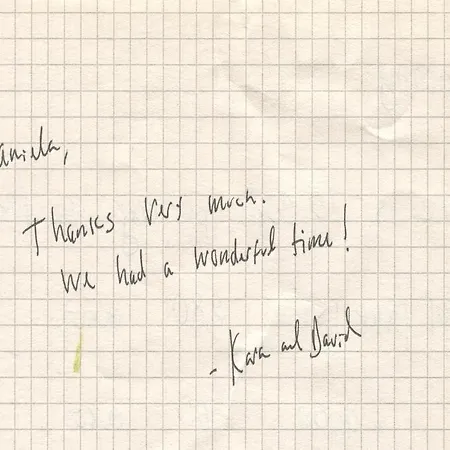 aniela,
Thanks very much.
We had a wonderful time!
- Kara and David